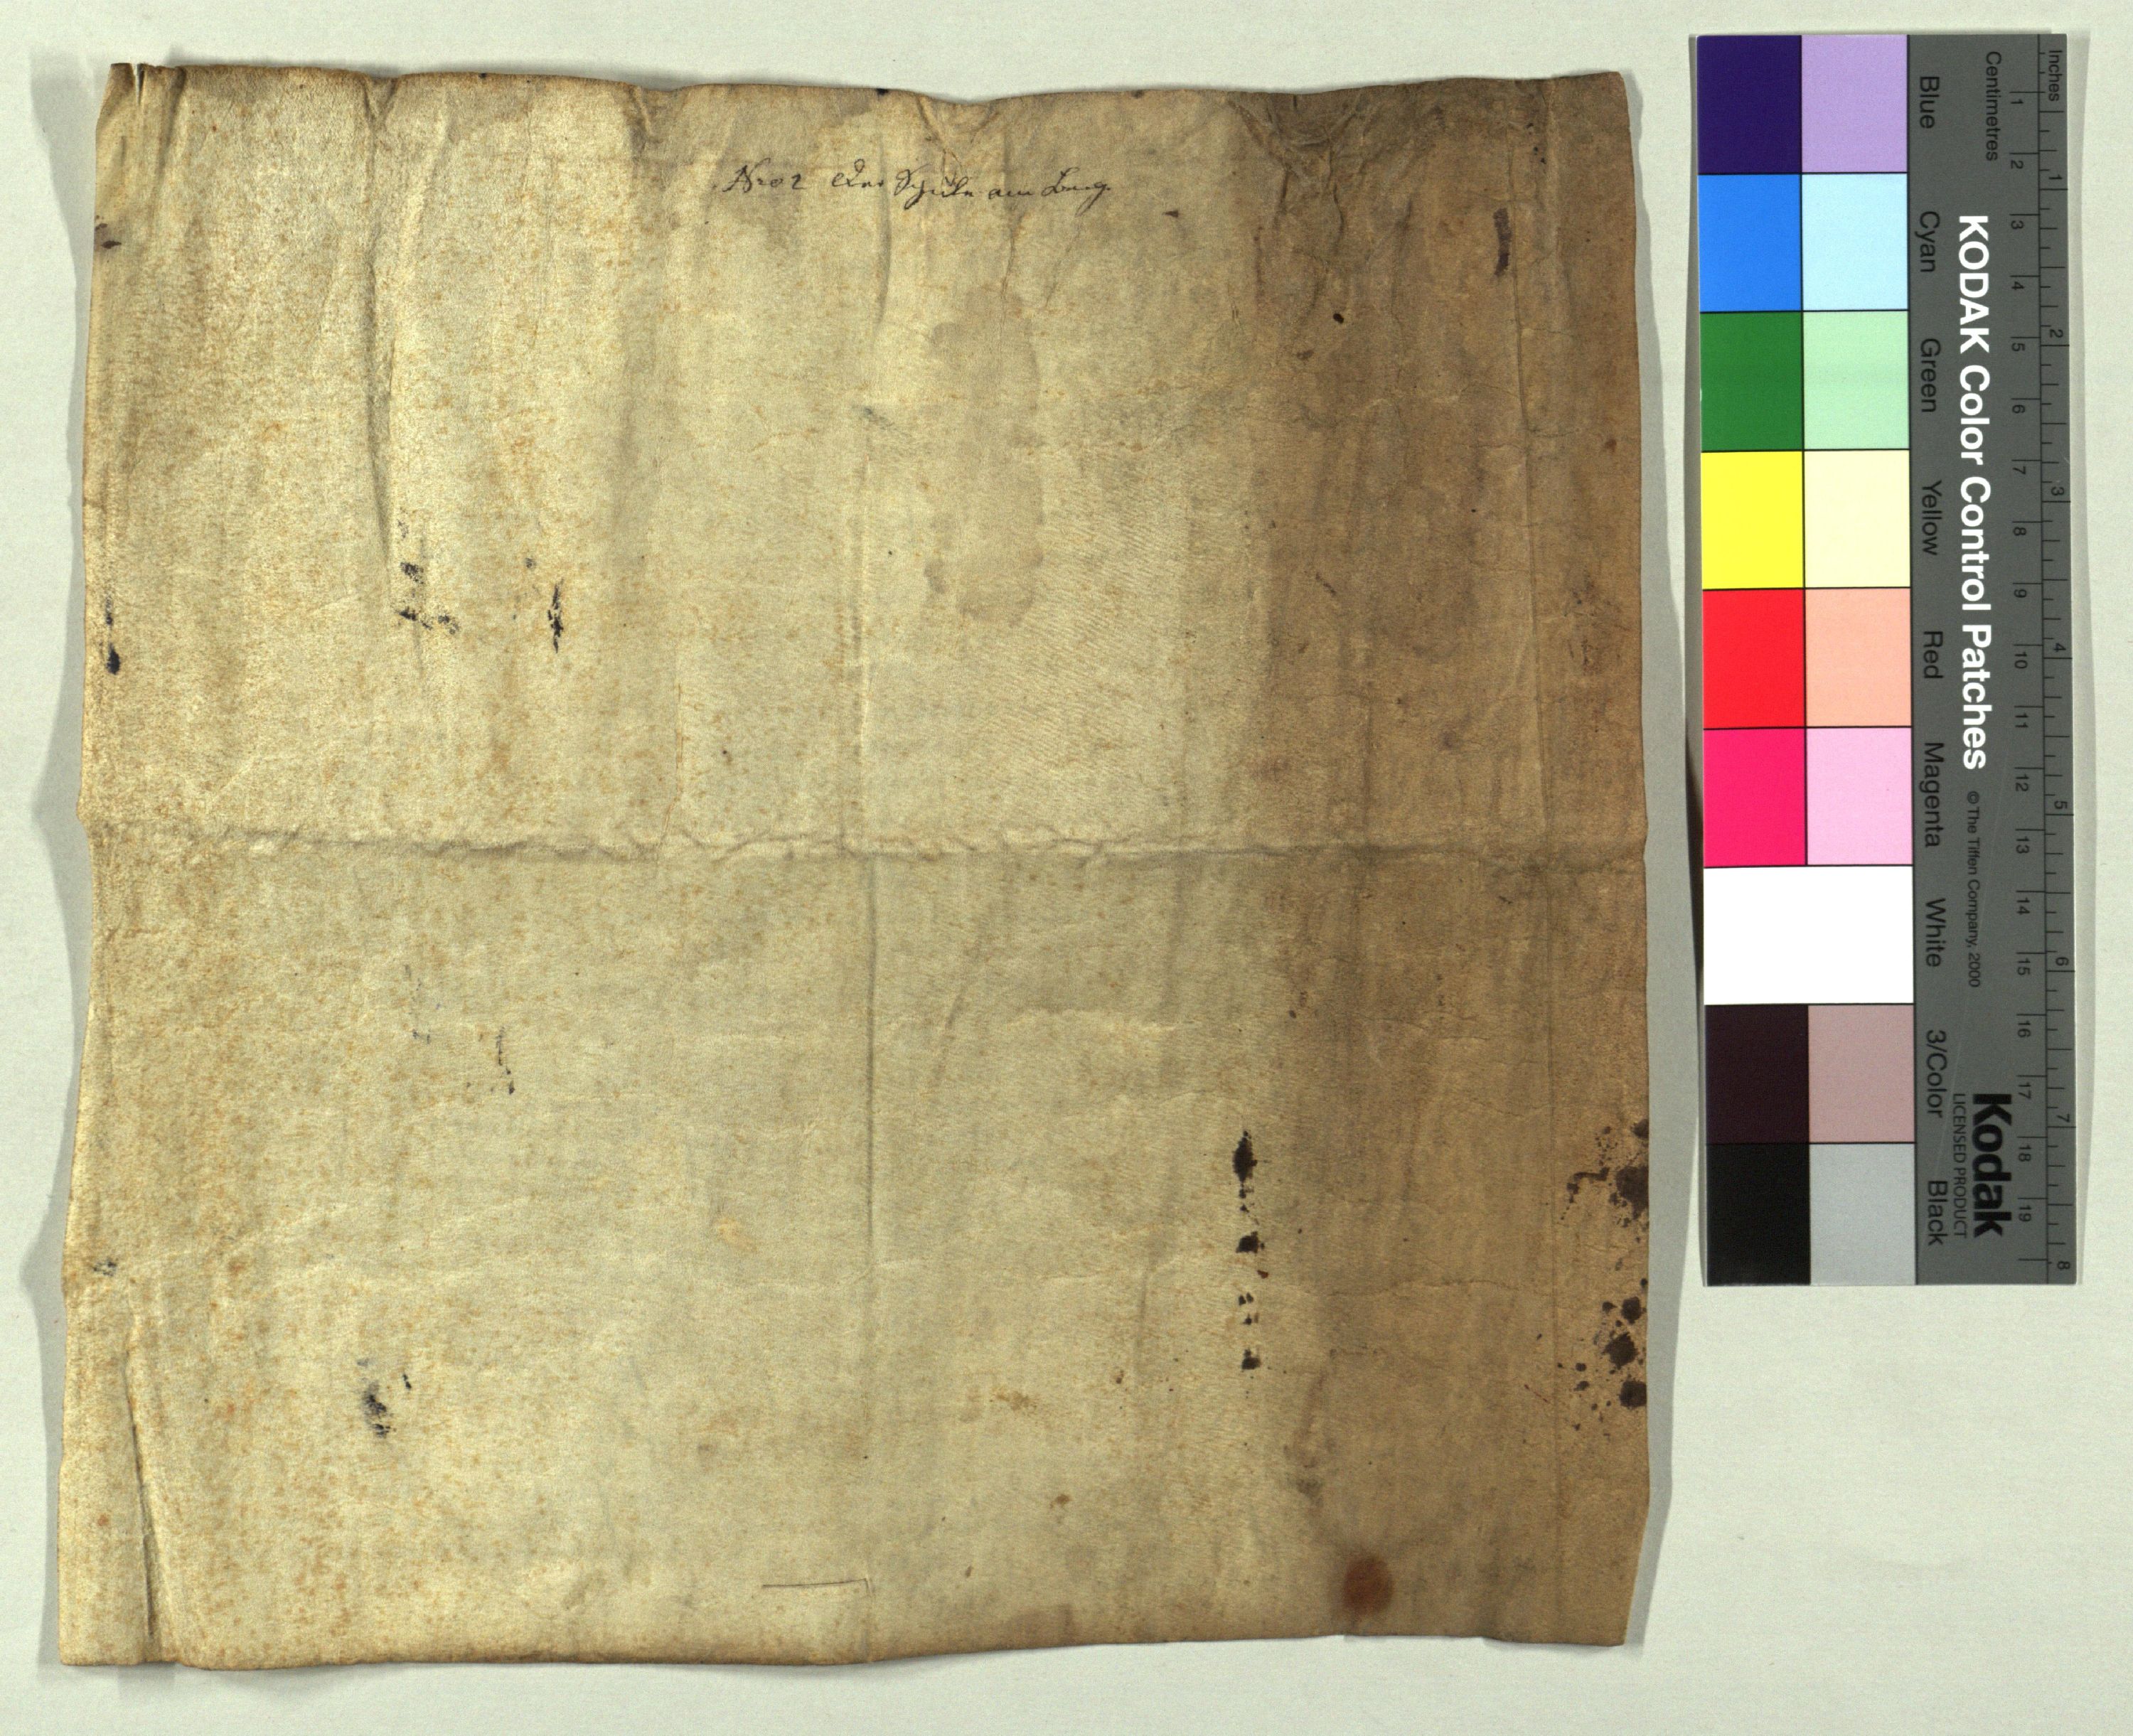 Nro 2 Der Schule am Berg.
Inches
Centimetres
1 2 3 4 5 6 7 8
1 2 3 4 5 6 7 8 9 10 11 12 13 14 15 16 17 18 19
KODAK Color Control Patches © The Tiffen Company, 2000
Kodak
LICENSED PRODUCT
Blue Cyan Green Yellow Red Magenta White 3/Color Black